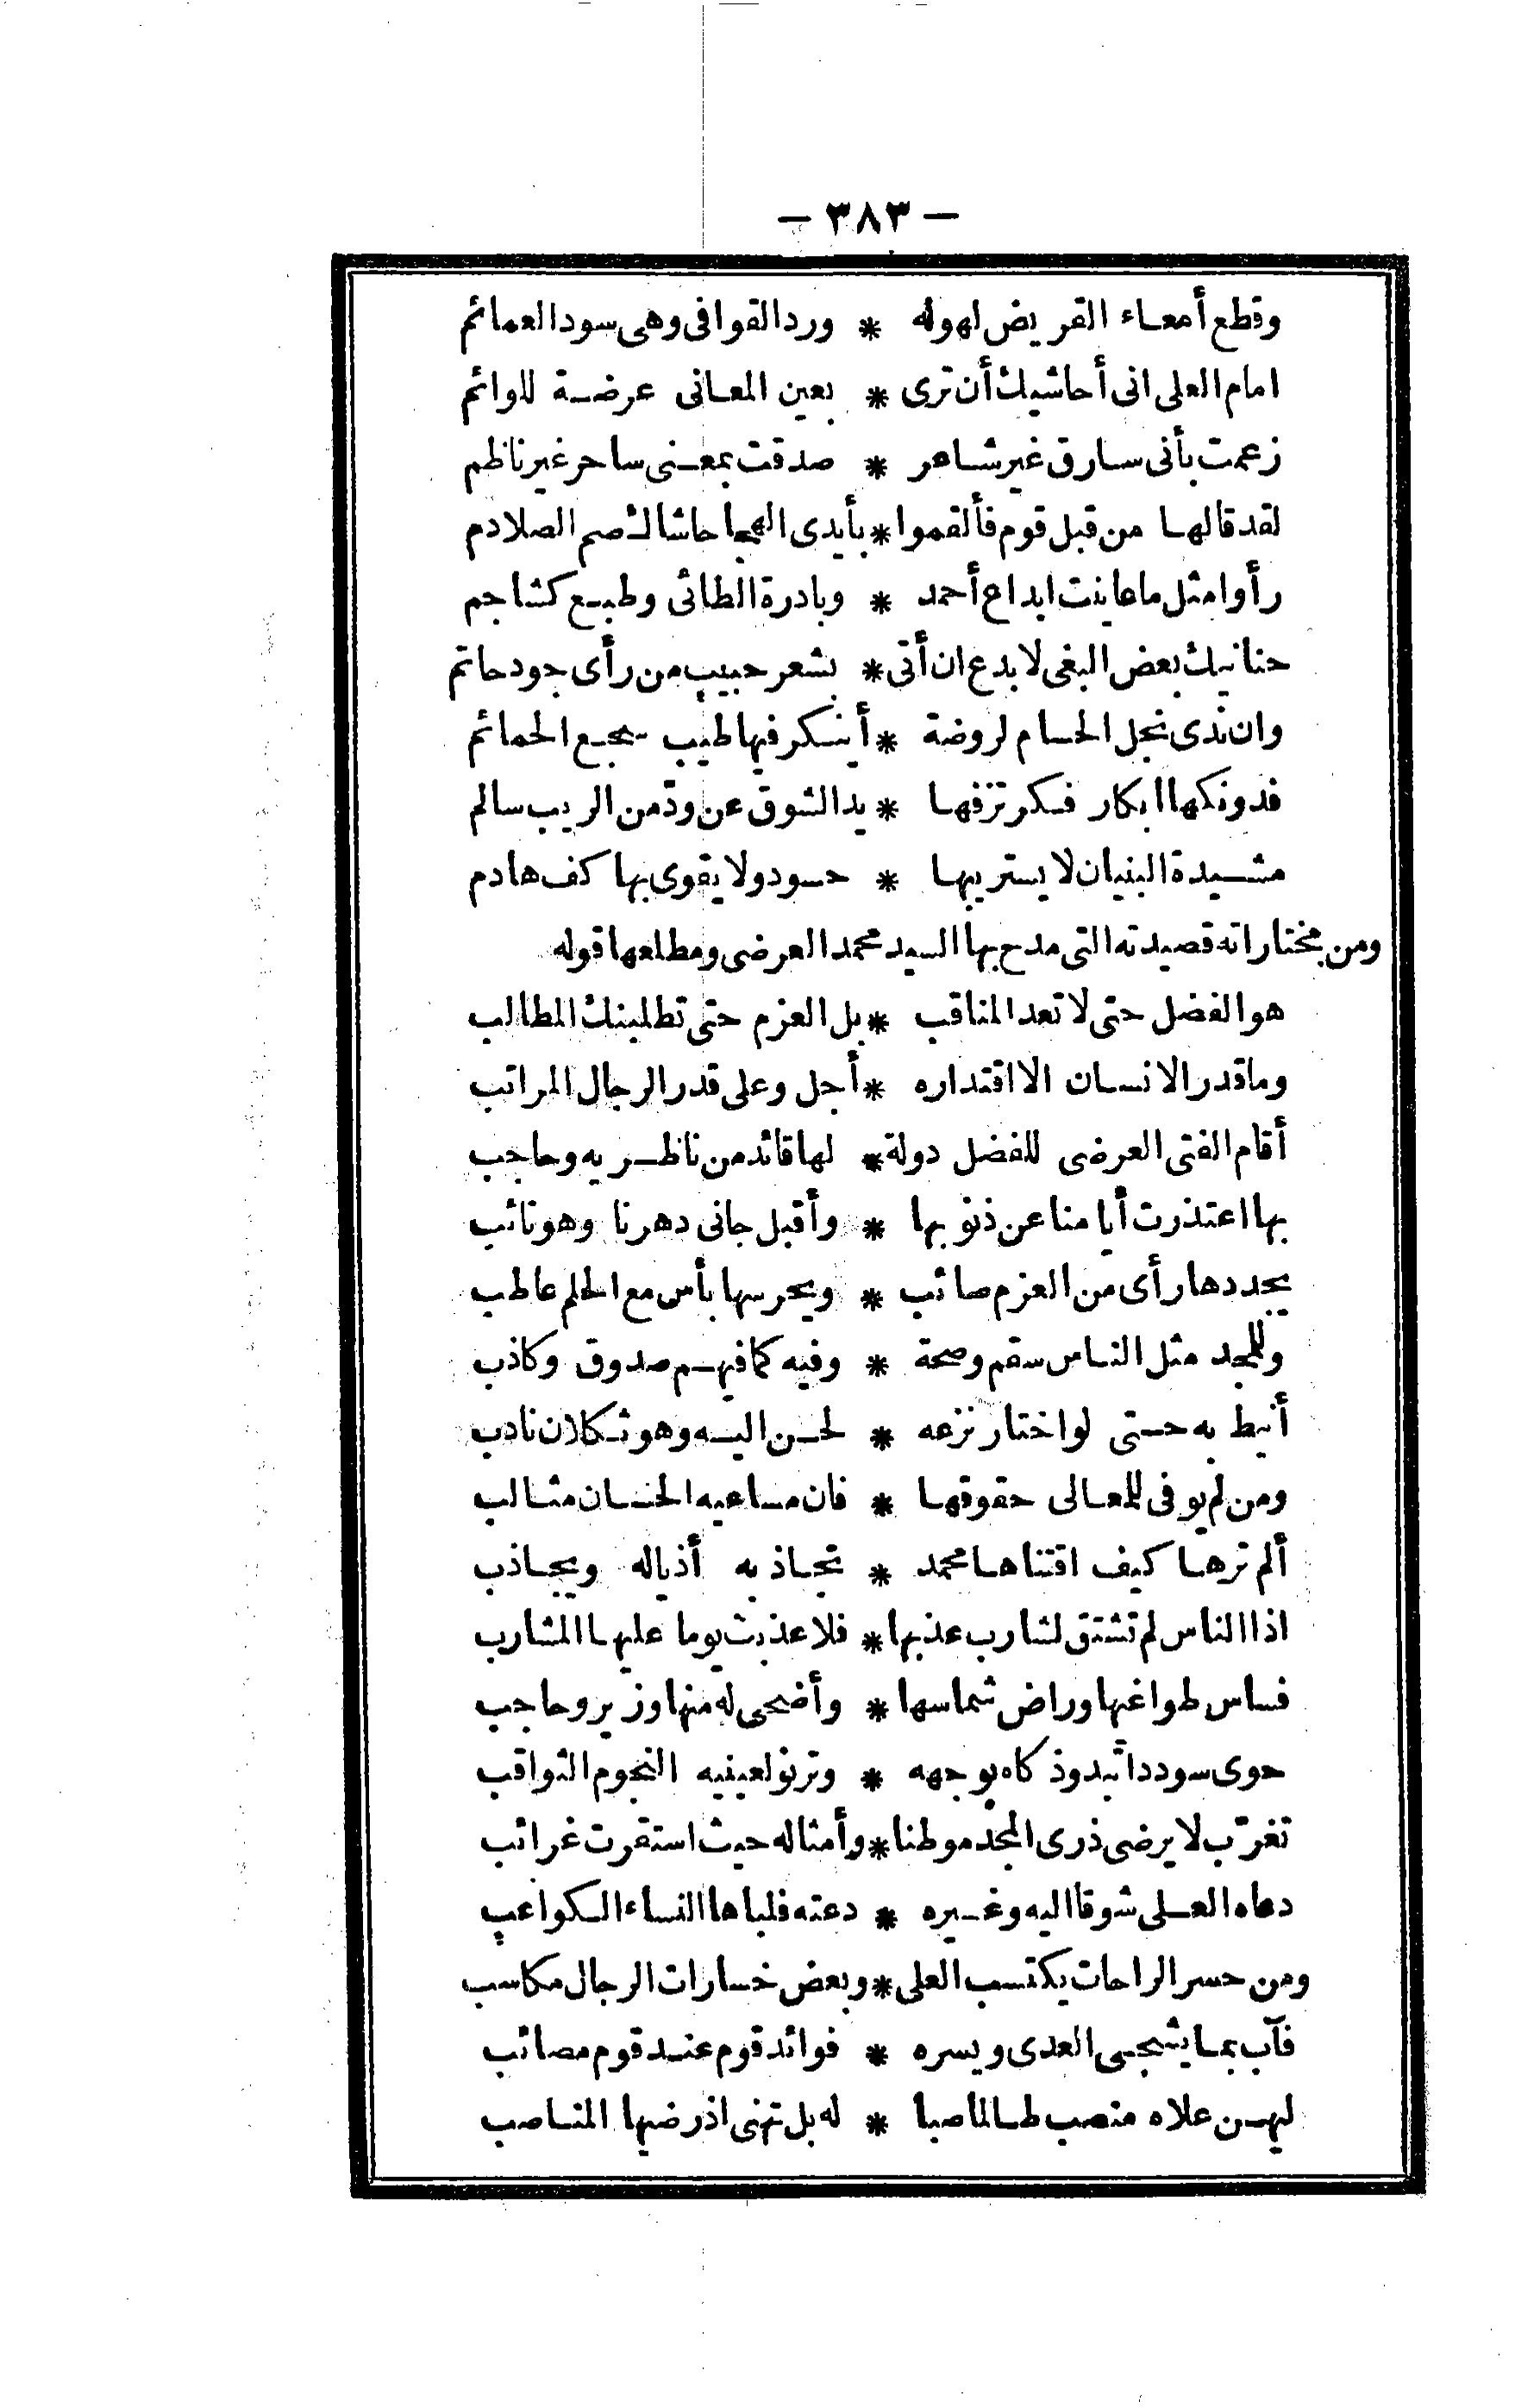 — ٣٨٣ —
وقطع أمعاء القريض لهوله * ورد القوافى وهى سود العمائم
امام العلى انى أحاشيك أن ترى * بعين المعانى عرضة للوائم
زعمت بأنى سارق غير شاعر * صدقت بمعنى ساحر غير ناظم
لقد قالها من قبل قوم فألقموا * بأيدى الهجا حاشاك صم الصلادم
رأوا مثل ما عاينت ابداع أحمد * وبادرة الطائى وطبع كشاجم
حنانيك بعض البغى لا بدع ان أتى * بشعر حبيب من رأى جود حاتم
وان ندى نجل الحسام لروضة * أينكر فيها طيب سجع الحمائم
فدونكها ابكار فكر تزفها * يد الشوق عن ودّ من الريب سالم
مشيدة البنيان لا يستريبها * حسود ولا يقوى بها كف هادم
ومن مختاراته قصيدته التى مدح بها السيد محمد العرضى ومطلعها قوله
هو الفضل حتى لا تعد المناقب * بل العزم حتى تطلبنك المطالب
وما قدر الانسان الا اقتداره * أجل وعلى قدر الرجال المراتب
أقام الفتى العرضى للفضل دولة * لها قائد من ناظريه وحاجب
بها اعتذرت أيامنا عن ذنوبها * وأقبل جانى دهرنا وهو تائب
يجددها رأى من العزم صائب * ويحرسها بأس مع الحلم عاطب
وللمجد مثل الناس سقم وصحة * وفيه كما فيهم صدوق وكاذب
أنيط به حتى لو اختار نزعه * لحن اليه وهو ثكلان نادب
ومن لم يوفى للمعالى حقوقها * فان مساعيه الحسان مثالب
ألم ترها كيف اقتناها محمد * تجاذبه أذياله ويجاذب
اذا الناس لم تشتق لشارب عذبها * فلا عذبت يوما عليها المشارب
فساس طواغيها وراض شماسها * وأضحى له منها وزير وحاجب
حوى سوددا تبدو ذكاه بوجهه * وترنو لعينيه النجوم الثواقب
تغرّب لا يرضى ذرى المجد موطنا * وأمثاله حيث استقرت غرائب
دعاه العلى شوقا اليه وغيره * دعته فلباها النساء الكواعب
ومن حسر الراحات يكتسب العلى * وبعض خسارات الرجال مكاسب
فآب بما يشجى العدى ويسره * فوائد قوم عند قوم مصائب
ليهن علاه منصب طالما صبا * له بل تهنى اذ رضيها المناصب